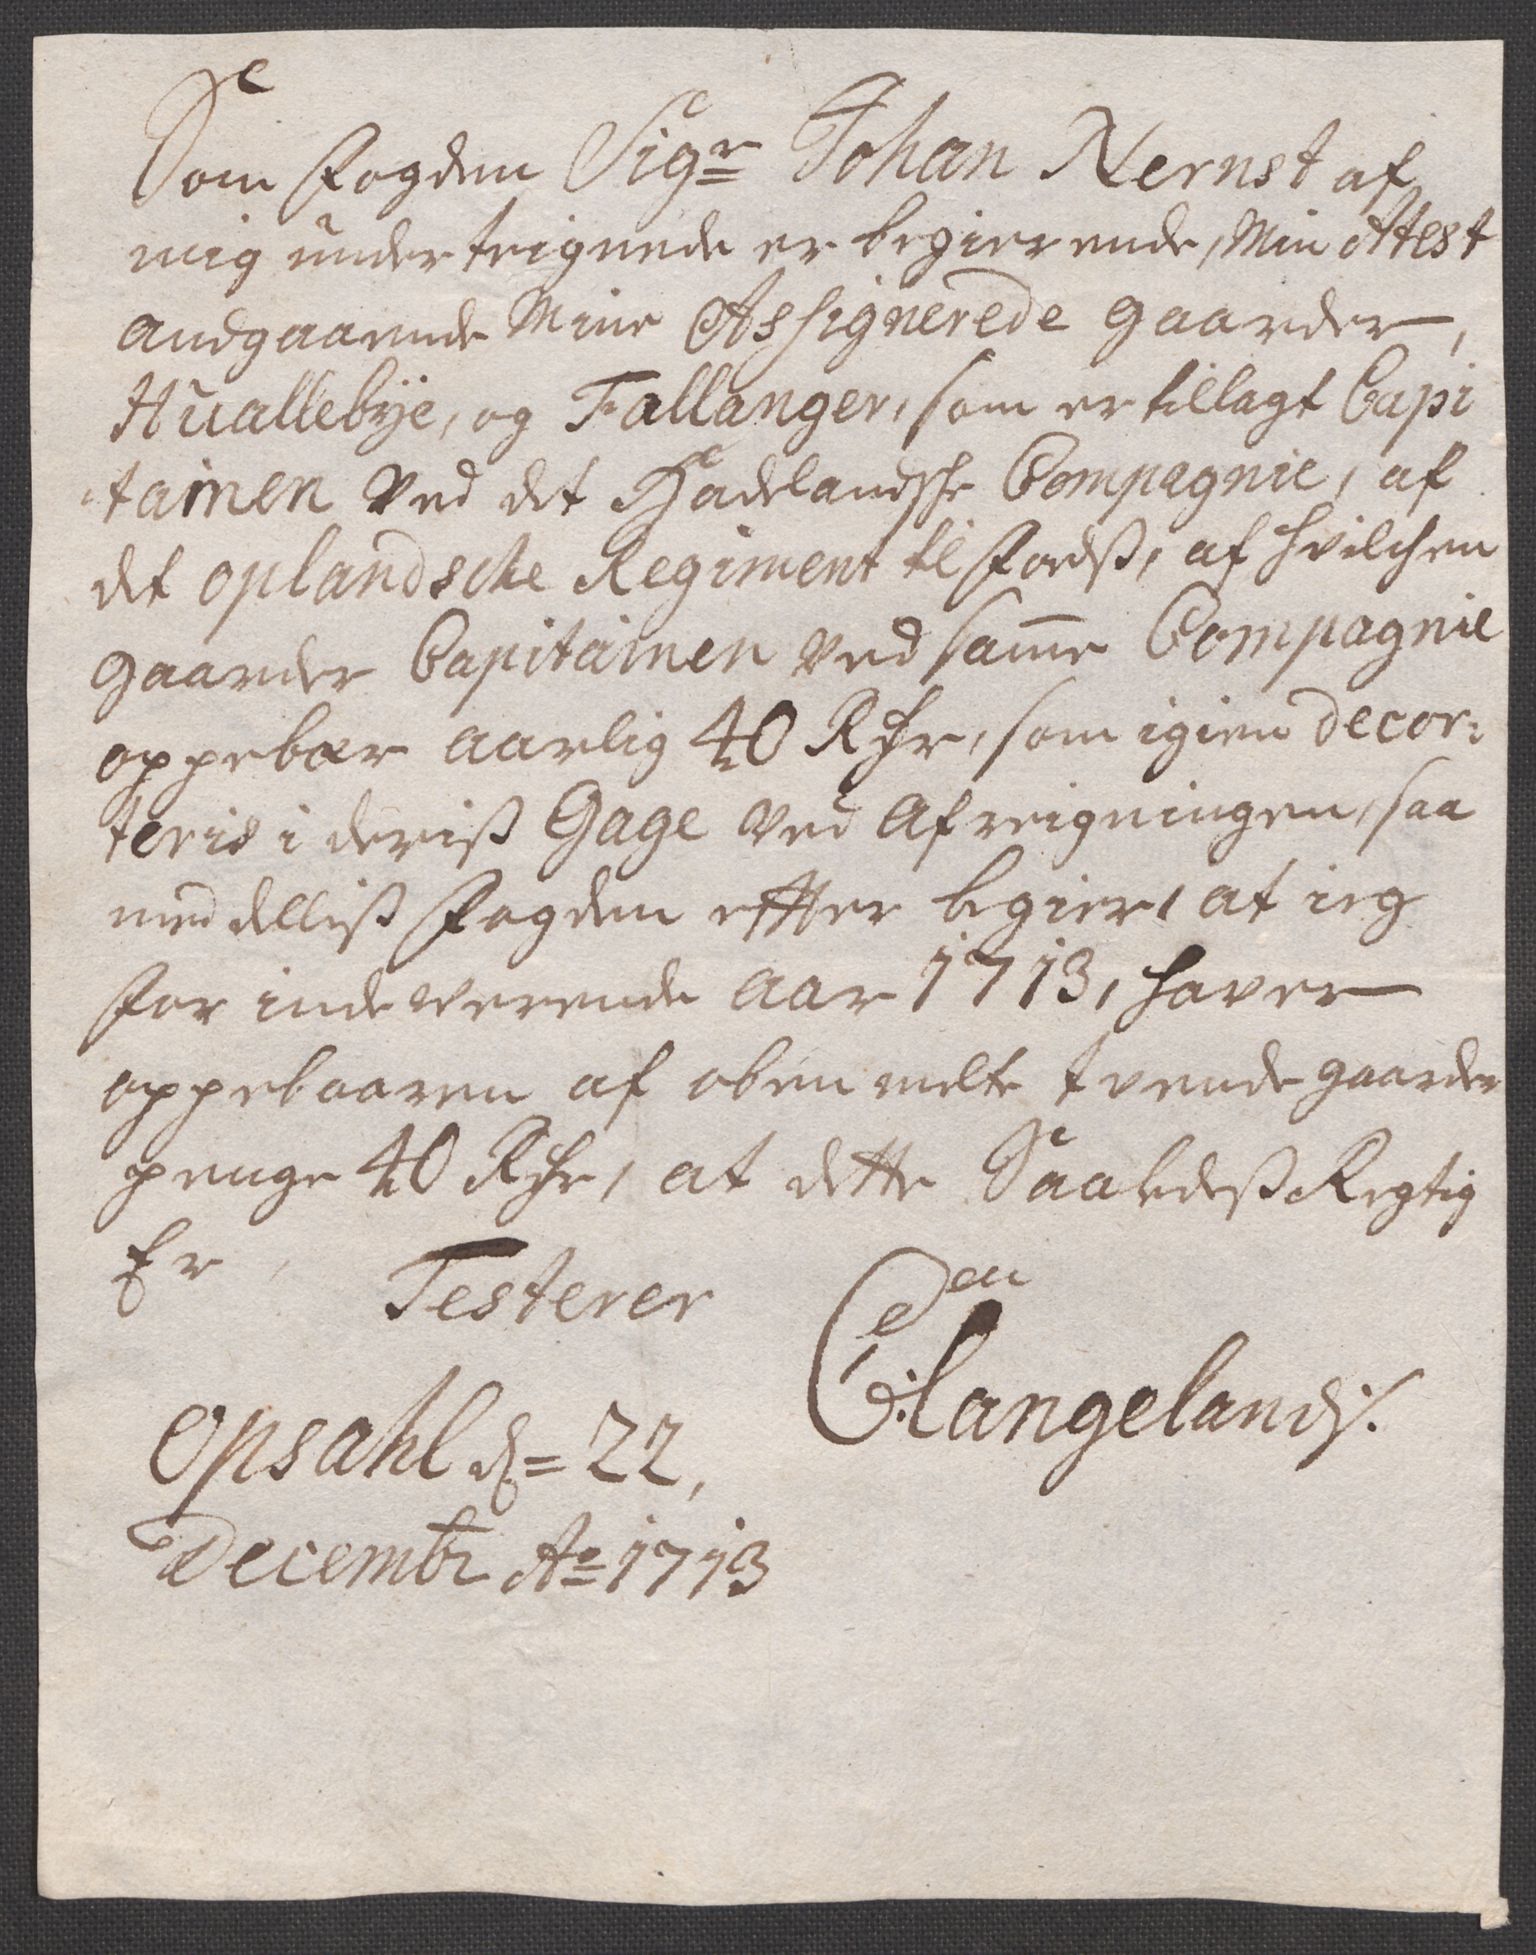 Som Fogden Sigr Johan Nernst af
mig under teignede er begierende, Min Attest
andgaaende Mine Assignerede gaarder,
Huallebÿe, og Fallanger, som er tillagt Capi
tainen Ved det Hadelandsche Compagnie, af
det oplandsche Regiment til Fodß, af hvilchen
gaarder Capitainen Ved samme Compagnie
oppebær aarlig 40 Rdr, som igien decor:
teris i deriß Gage Ved Afreigningen, saa
meddelliß Fogden effter begier, at ieg
for indeverende Aar 1713, haver
oppebaaren af oben melte tvende gaarder
penge 40 Rdr, at dette Saaledeß Regtig
Er, Testerer
Langeland
Opsahl d= 22,
Decembr Ao 1713